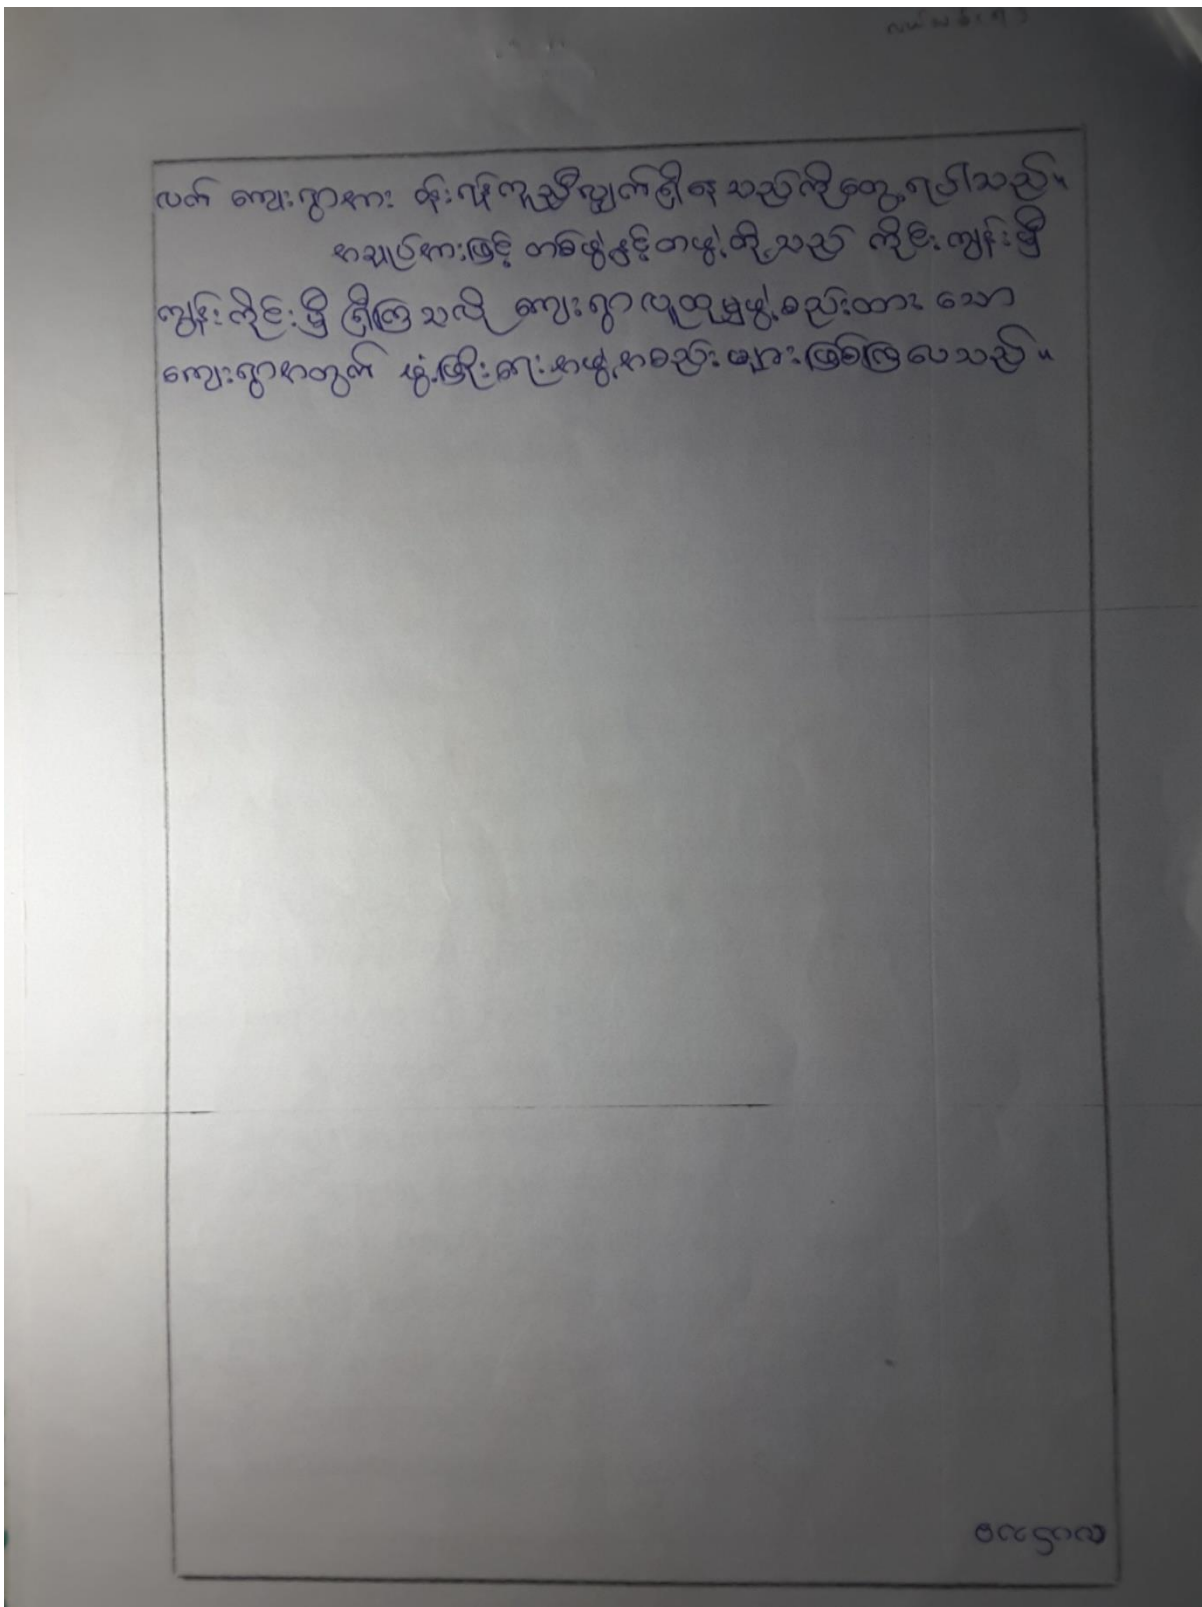 လက် ကျေးရွာအား ဝန်းရံကူညီလျှက်ရှိနေသည်ကိုတွေ့ရပါသည်။
အချုပ်အားဖြင့် တစ်ဖွဲ့နှင့်တဖွဲ့တို့သည် ကိုင်းကျွန်းမှီ
ကျွန်းကိုင်းမှီ ရှိကြသလို ကျေးရွာလူထုမှဖွဲ့စည်းထား သော
ကျေးရွာအတွက် ဖွံ့ဖြိုးရေးအဖွဲ့အစည်းများဖြစ်ကြပေသည်။